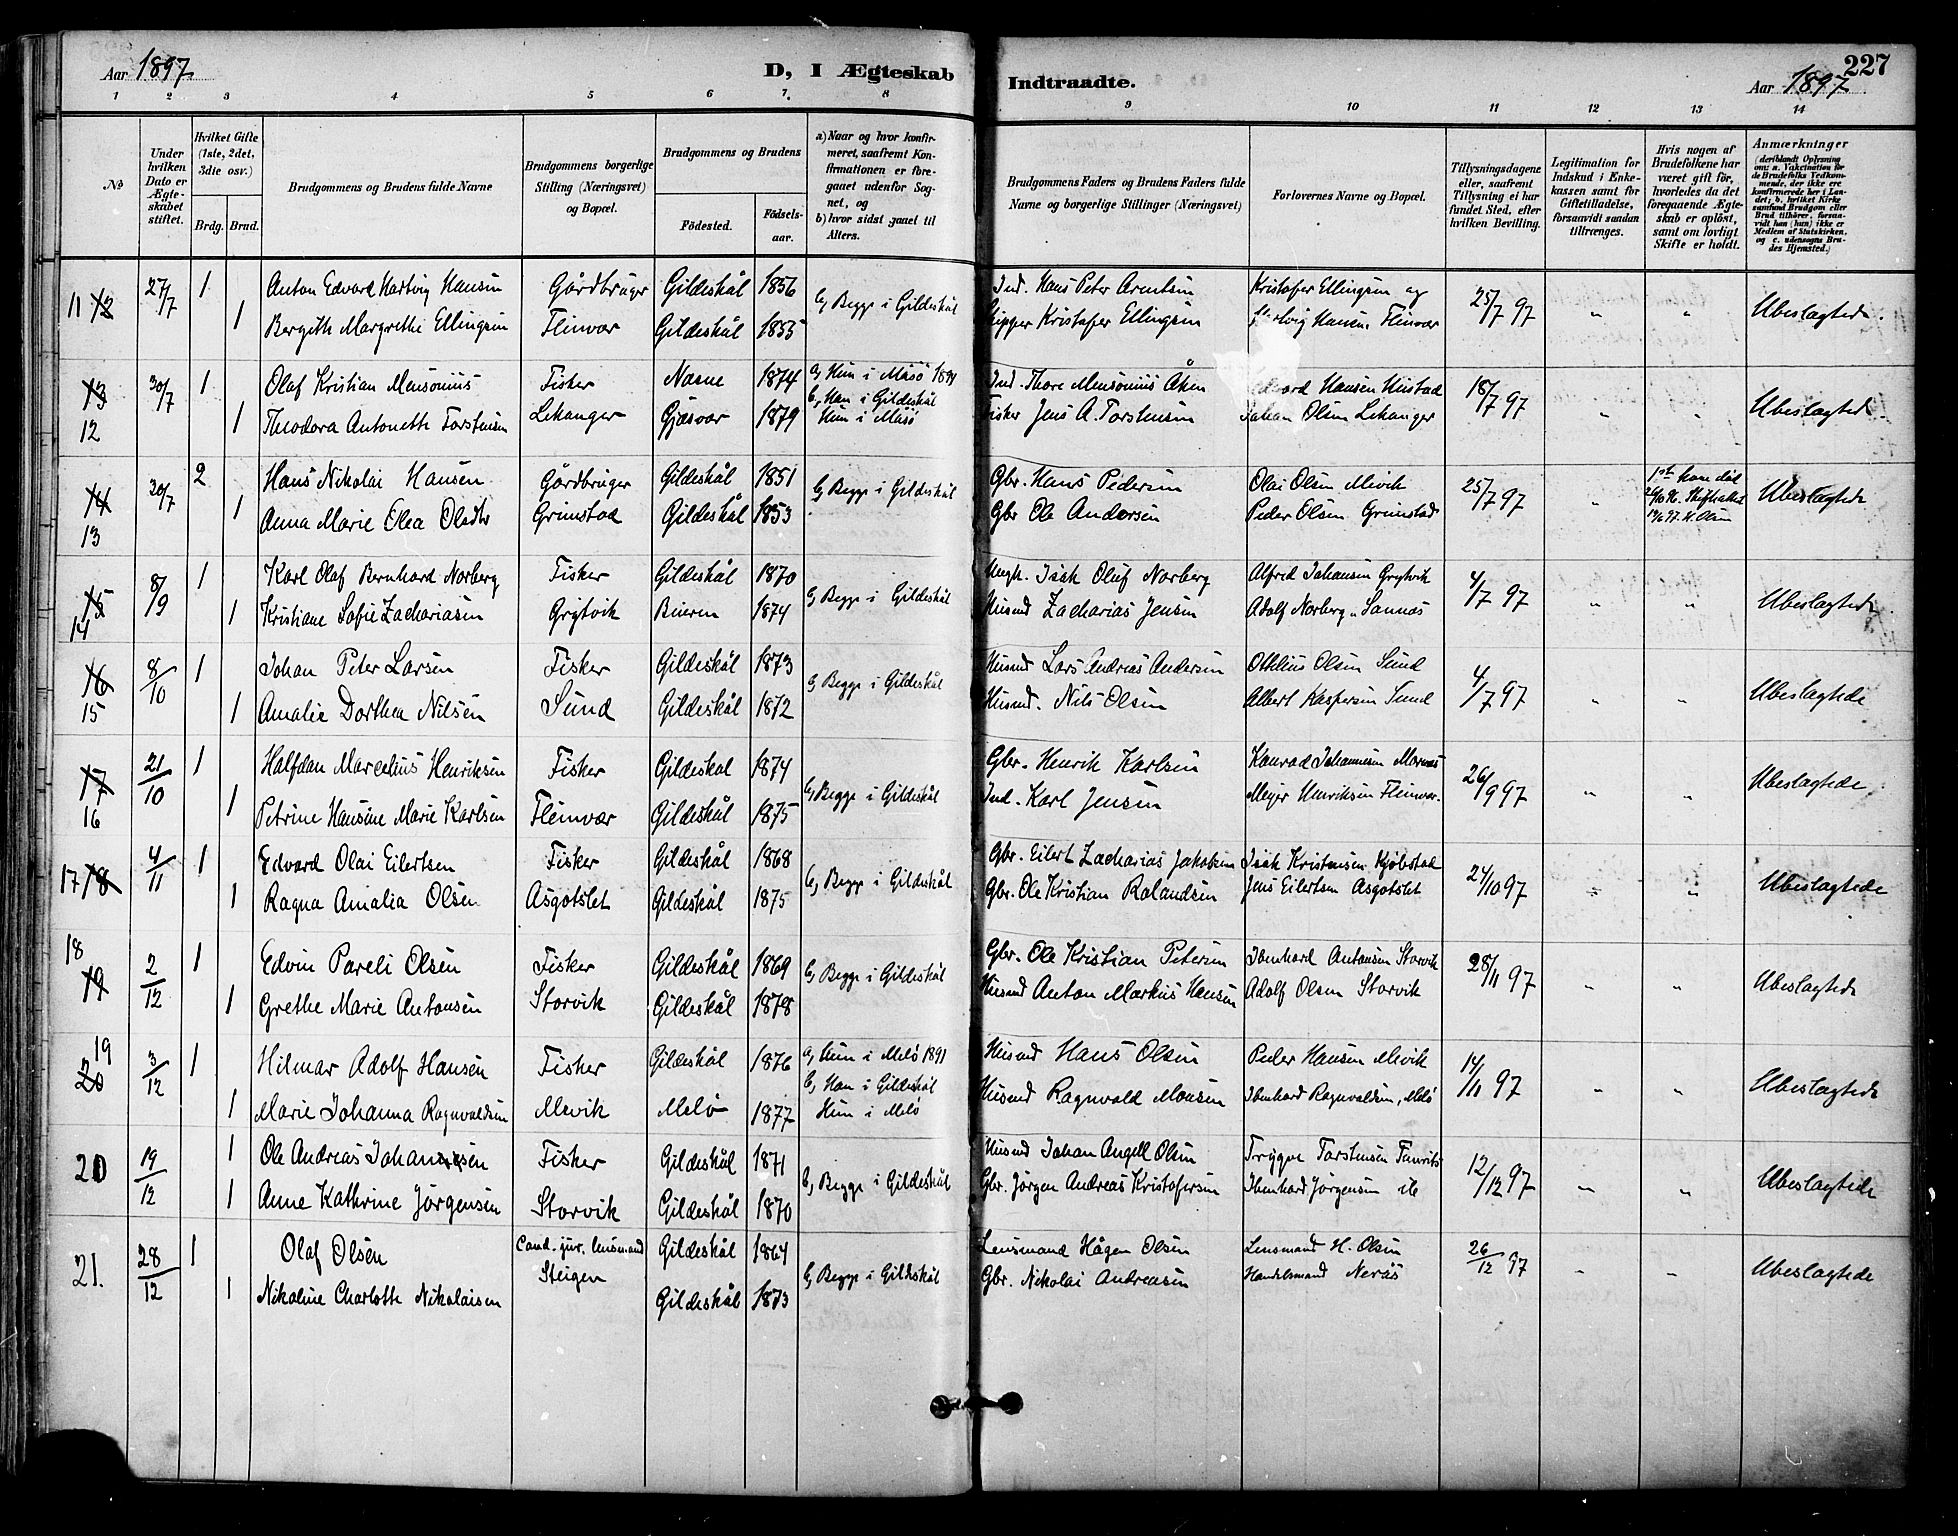 Aar 1897
D, I Ægteskab
Indtraadte.
227
Aar 1897
1 2 3 4 5 6 7 8 9 10 11 12 13 14
No
Under hvilken Dato er Ægteskabet stiftet.
Hvilket Gifte (1ste, 2det, 3die osv.)
Brdg. Brud.
Brudgommens og Brudens fulde Navne
Brudgommens borgerlige Stilling (Næringsvei) og Bopæl.
Brudgommens og Brudens
Fødested. Fødselsaar.
a) Naar og hvor konfirmeret, saafremt Konfirmationen er foregaaet udenfor Sognet, og
b) hvor sidst gaaet til Alters.
Brudgommens Faders og Brudens Faders fulde Navne og borgerlige Stillinger (Næringsvei)
Forlovernes Navne og Bopæl.
Tillysningsdagene eller, saafremt Tillysning ei har fundet Sted, efter hvilken Bevilling.
Legitimation for Indskud i Enkekassen samt for Giftetilladelse, forsaavidt saadan tiltrænges.
Hvis nogen af Brudefolkene har været gift før, hvorledes da det foregaaende Ægteskab er opløst, samt om lovligt Skifte er holdt.
Anmærkninger
(deriblandt Oplysning om: a. Vakcination for de Brudefolks Vedkommende, der ikke ere konfirmerede her i Landet; b. hvilket Kirkesamfund Brudgom eller Brud tilhører, forsaavidt han (hun) ikke er Medlem af Statskirken, og c. udensogns Brudes Hjemsted.)
11 12 27/7 1 Anton Edvard Hartvig Hansen Gårdbruger Gildeskål 1856 b, Begge i Gildeskål Ind. Hans Peter Arntsen Kristofer Ellingsen og 25/7 97 " " Ubeslægtede.
1 Bergith Margrethe Ellingsen Fleinvær Gildeskål 1855 Skipper Kristofer Ellingsen Hartvig Hansen Fleinvær
13 30/7 1 Olaf Kristian Mensonius Fisker Næsne 1874 a, Hun i Måsö 1894 Ind. Thore Mensonius Åker Edvard Hansen Hustad 18/7 97 " " Ubeslægtede
b, Han i Gildeskål
12 1 Theodora Antonette Torstensen Lekanger Gjæsvær 1879 Hun i Måsö Fisker Jens A. Torstensen Johan Olsen Lekanger
14 30/7 2 Hans Nikolai Hansen Gårdbruger Gildeskål 1851 b, Begge i Gildeskål Gbr. Hans Pedersen Olai Olsen Mevik 25/7 97 " 1ste kone död Ubeslægtede
13 1 Anna Marie Elea Olsdtr Grimstad Gildeskål 1853 Gbr Ole Andersen Peder Olsen Grimstad
15 8/9 1 Karl Olaf Bernhard Norberg Fisker Gildeskål 1870 b, Begge i Gildeskål Ungk. Isak Oluf Norberg Alfred Johansen Grytvik 4/7 97 " " Ubeslægtede
14 1 Kristiane Sofie Zachariasen Grytvik Beieren 1874 Husmd Zacharias Jensen Adolf Norberg, Sannæs
16 8/10 1 Johan Peter Larsen Fisker Gildeskål 1873 b, Begge i Gildeskål Husmd Lars Andreas Andersen Othelius Olsen Sund 4/7 97 " " Ubeslægtede
15 1 Amalie Dorthea Nilsen Sund Gildeskål 1872 Husmd. Nils Olsen Albert Kaspersen Sund
17 21/10 1 Halfdan Marcelius Henriksen Fisker Gildeskål 1874 b, Begge i Gildeskål Gbr. Henrik Karlsen Konrad Johannesen Marnæs 26/9 97 " " Ubeslægtede
16 1 Petrine Hansine Marie Karlsen Fleinvær Gildeskål 1875 Ind. Karl Jensen Meyer Henriksen Fleinvær.
17 18 4/11 1 Edvard Olai Eilertsen Fisker Gildeskål 1868 b, Begge i Gildeskål Gbr. Eilert Zacharias Jakobsen Isak Kristensen Kjöbstad 24/10 97 " " Ubeslægtede
1 Ragna Amalia Olsen Asgotslet Gildeskål 1875 Gbr. Ole Kristian Rolandsen Jens Eilertsen Asgotslet
18 19 2/12 1 Edvin Pareli Olsen Fisker Gildeskål 1869 b, Begge i Gildeskål Gbr. Ole Kristian Petersen Ibenhard Antonsen Storvik 28/11 97 " " Ubeslægtede
1 Grethe Marie Antonsen Storvik Gildeskål 1878 Husmd Anton Markus Hansen Adolf Olsen Storvik
19 20 3/12 1 Hilmar Adolf Hansen Fisker Gildeskål 1876 a, Hun i Melö 1891 Husmd Hans Olsen Peder Hansen Mevik 14/11 97 " " Ubeslægtede
b, Han i Gildeskål
1 Marie Johanna Ragnvaldsen Mevik Melö 1877 Hun i Melö Husmd Ragnvald Monsen Ibenhard Ragnvaldsen, Melö
20 19/12 1 Ole Andreas Johansen Fisker Gildeskål 1871 b, Begge i Gildeskål Husmd Johan Angell Olsen Trygve Torstensen 12/12 97 " " Ubeslægtede
1 Anne Kathrine Jörgensen Storvik Gildeskål 1870 Gbr. Jörgen Andreas Kristofersen Ibenhard Jörgensen
21. 28/12 1 Olaf Olsen Cand. jur. lensmand Gildeskål 1864 b, Begge i Gildeskål Lensmand Hågen Olsen Lensmand H. Olsen 26/12 97 " " Ubeslægtede
1 Nikoline Charlotte Nikolaisen Steigen Gildeskål 1873 Gbr. Nikolai Andreasen Handelsmand Nerås